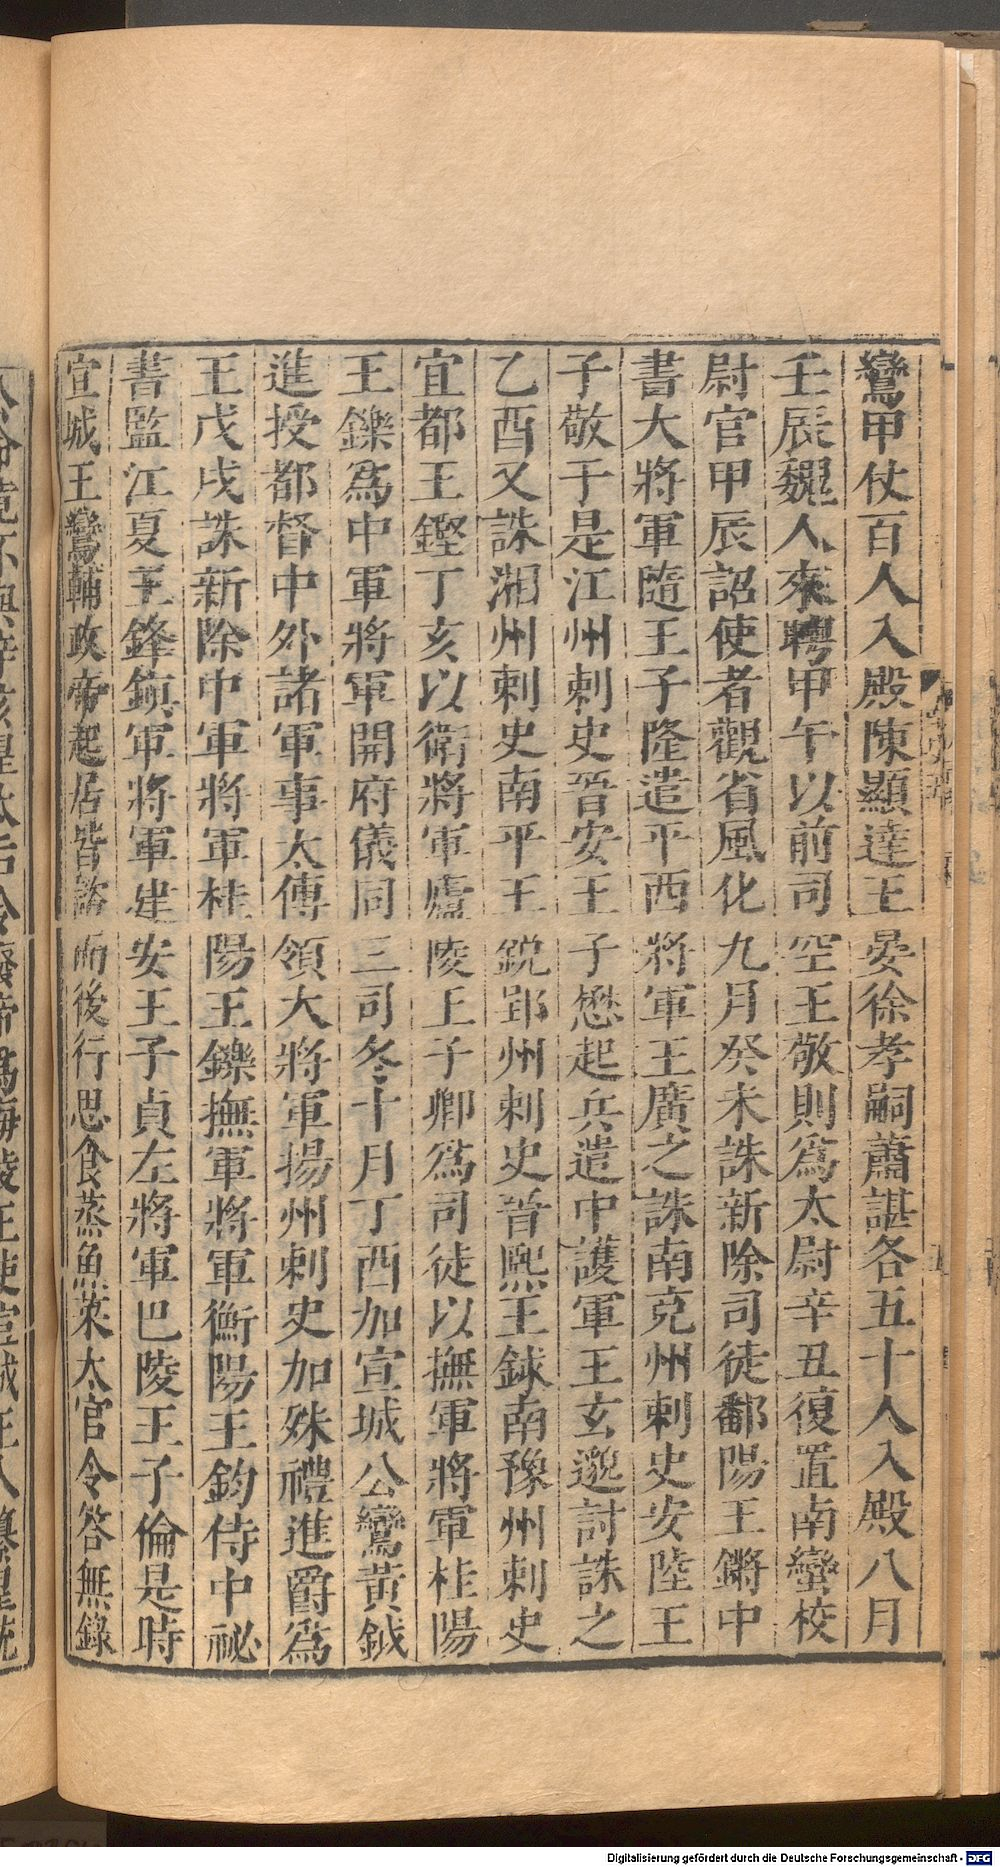 鸞甲仗百人入殿陳顯達王晏徐孝嗣蕭諶各五十人入殿八月
壬辰魏人來聘甲午以前司空王敬則爲太尉辛丑復置南蠻校
尉官甲辰詔使者觀省風化九月癸未誅新除司徒鄱陽王鏘中
書大將軍隨王子隆遣平西將軍王廣之誅南兗州刺史安陸王
子敬于是江州刺史晉安王子懋起兵遣中護軍王玄邈討誅之
乙酉又誅湘州刺史南平王銳郢州刺史晉熙王銶南豫州刺史
宜都王鏗丁亥以衛將軍廬陵王子卿爲司徒以撫軍將軍桂陽
王鑠爲中軍將軍開府儀同三司冬十月丁酉加宣城公鸞黃鉞
進授都督中外諸軍事太傅領大將軍揚州刺史加殊禮進爵爲
王戊戌誅新除中軍將軍桂陽王鑠撫軍將軍衡陽王鈞侍中祕
書監江夏王鋒鎮軍將軍建安王子貞左將軍巴陵王子倫是時
宣城王鸞輔政帝起居皆諮而後行思食蒸魚菜太官令答無錄
Digitalisierung gefördert durch die Deutsche Forschungsgemeinschaft - DFG